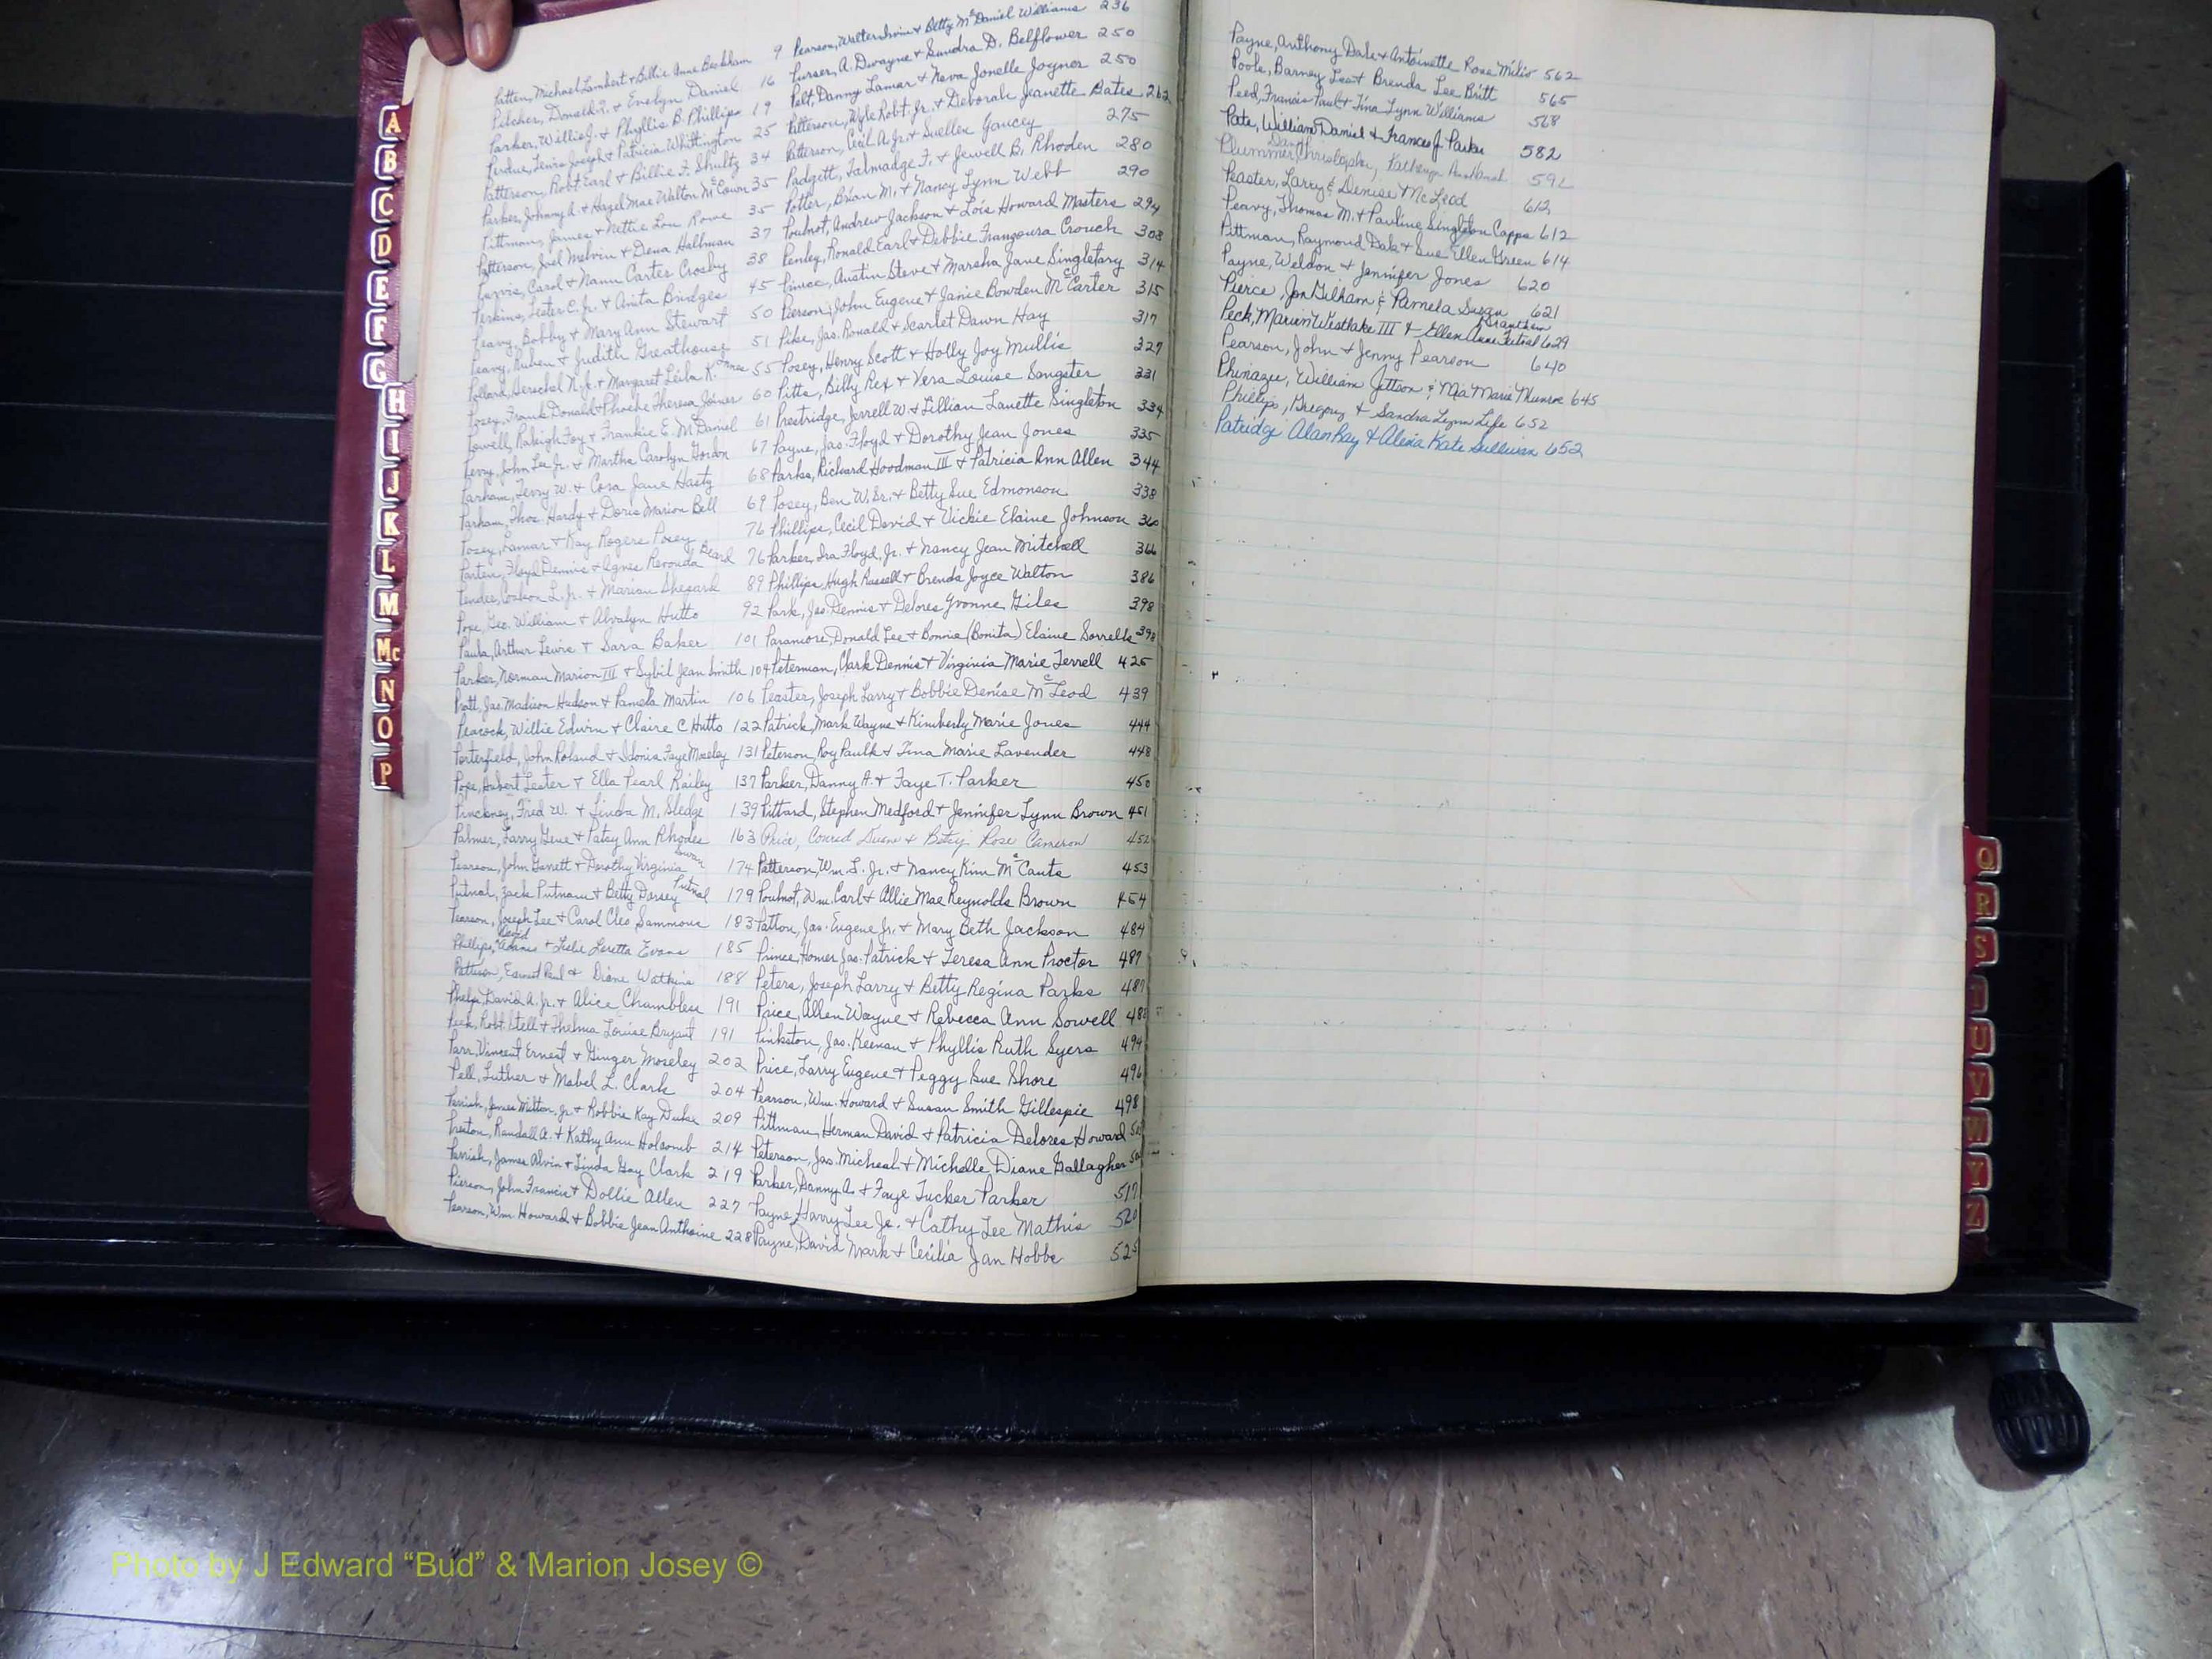 Patten, Michael Lambert & Billie Anne Beckham 9
Pitcher, Donald R. & Evelyn Daniel 16
Parker, Willie J. & Phyllis B. Phillips 19
Perdue, Lewis Joseph & Patricia Whittington 25
Patterson, Robt. Earl & Billie F. Shultz 34
Parker, Johnny A. & Hazel Mae Walton McCown 35
Pittman, James & Nettie Lou Rowe 35
Patterson, Joel Melvin & Dena Hallman 37
Carol & Nann Carter Crosby 38
Perkins, Lester C. Jr. & Anita Bridges 45
Peavy, Bobby & Mary Ann Stewart 50
Peavy, Ruben & Judith Greathouse 51
Pollard, Herschel N. Jr. & Margaret Leila K. 55
Posey, Frank Donald & Phoebe Theresa Joiner 60
Powell, Raleigh Foy & Frankie E. McDaniel 61
Perry, John Lee Jr. & Martha Carolyn Gordon 67
Parham, Terry W. & Cora Jane Hasty 68
Parham, Thos. Hardy & Doris Marion Bell 69
Posey, Lamar & Kay Rogers Posey 76
Parten, Floyd Dennis & Agnes Revonda Beard 76
L. Jr. & Marian Shepard 89
Pope, Geo. William & Alvalyn Hutto 92
Paula, Arthur Lewis & Sara Baker 101
Parker, Norman Marion III & Sybil Jean Smith 104
Pratt, Jas. Madison Hudson & Pamela Martin 106
Peacock, Willie Edwin & Claire C Hutto 122
Porterfield, John Roland & Idonia Faye Moseley 131
Pope, Hubert Lester & Ella Pearl Railey 137
Pinckney, Fred W. & Linda M. Sledge 139
Palmer, Larry Gene & Patsy Ann Rhodes 163
Pearson, John Garrett & Dorothy Virginia 174
Putnal, Jack Putnam & Betty Dorsey Putnal 179
Pearson, Joseph Lee & Carol Cleo Sammons 183
Phillips, David Adams & Leslie Loretta Evans 185
Patterson, Earnest Paul & Diane Watkins 188
Phelps, David A. Jr. & Alice Chambless 191
Peek, Robt. Stell & Thelma Louise Bryant 191
Parr, Vincent Ernest & Ginger Moseley 202
Pell, Luther & Mabel L. Clark 204
Parrish, James Milton, Jr. & Robbie Kay Duke 209
Preston, Randall A. & Kathy Ann Holcomb 214
Parrish, James Alvin & Linda Gay Clark 219
Pierson, John Francis & Dollie Allen 227
Pearson, Wm. Howard & Bobbie Jean Anthoine 228
Pearson, Walter Irvin & Betty McDaniel Williams 236
Purser, A. Dwayne & Sandra D. Belflower 250
Pelt, Danny Lamar & Neva Jonelle Joyner 250
Patterson, Wyle Robt. Jr. & Deborah Jeanette Bates 262
Patterson, Cecil A. Jr. & Suellen Yancey 275
Padgett, Talmadge F. & Jewell B. Rhoden 280
Potter, Brian M. & Nancy Lynn Webb 290
Poulnot, Andrew Jackson & Lois Howard Masters 294
Penley, Ronald Earl & Debbie Franzoura Crouch 308
Prince, Austin Steve & Marsha Jane Singletary 314
Pierson, John Eugene & Janie Bowden McCarter 315
Pike, Jas. Ronald & Scarlet Dawn Hay 317
Posey, Henry Scott & Holly Joy Mullis 327
Pitts, Billy Rex & Vera Louise Sangster 331
Prestridge, Jerrell W. & Lillian Lanette Singleton 334
Payne, Jas. Floyd & Dorothy Jean Jones 335
Parks, Richard Hoodman III & Patricia Ann Allen 344
Posey, Ben W. Sr. & Betty Sue Edmonson 338
Phillips, Cecil David & Vickie Elaine Johnson 360
Parker, Ira Floyd, Jr. & Nancy Jean Mitchell 366
Phillips, Hugh Russell & Brenda Joyce Walton 386
Park, Jas. Dennis & Delores Yvonne Giles 398
Paramore, Donald Lee & Bonnie (Bonita) Elaine Sorrells 398
Peterman, Clark Dennis & Virginia Marie Terrell 425
Peaster, Joseph Larry & Bobbie Denise McLeod 439
Patrick, Mark Wayne & Kimberly Marie Jones 444
Peterson, Roy Paulk & Tina Marie Lavender 448
Parker, Danny A. & Faye T. Parker 450
Pittard, Stephen Medford & Jennifer Lynn Brown 451
Price, Conrad Duane & Betsy Rose Cameron 452
Patterson, Wm. L. Jr. & Nancy Kim McCants 453
Poulnot, Wm. Carl & Allie Mae Reynolds Brown 454
Patton, Jas. Eugene Jr. & Mary Beth Jackson 484
Prince, Homer Jas. Patrick & Teresa Ann Proctor 487
Peters, Joseph Larry & Betty Regina Parks 487
Price, Allen Wayne & Rebecca Ann Sowell 488
Pinkston, Jas. Keenan & Phyllis Ruth Syers 494
Price, Larry Eugene & Peggy Sue Shore 496
Pearson, Wm. Howard & Susan Smith Gillespie 498
Pittman, Herman David & Patricia Delores Howard
Peterson, Jas. Micheal & Michelle Diane Gallagher
Parker, Danny A. & Faye Tucker Parker 517
Payne, Harry Lee Jr. & Cathy Lee Mathis 520
Payne, David Mark & Cecilia Jan Hobbs 525
Payne, Anthony Dale & Antoinette Rose Milio 562
Poole, Barney Lee & Brenda Lee Britt 565
Peed, Francis Paul & Tina Lynn Williams 568
Pate, William Daniel & Frances J. Parker 582
Plummer, David Christopher, Kathryn 592
Peaster, Larry & Denise McLeod 612
Peavy, Thomas M. & Pauline Singleton Capps 612
Pittman, Raymond Dale & Sue Ellen Green 614
Payne, Weldon & Jennifer Jones 620
Pierce, Jon Gilham & Pamela Susan Grantham 621
Peck, Marion Westlake III & Ellen Anne Futral 629
Pearson, John & Jenny Pearson 640
Phinazee, William Jettson & Mia Marie Munroe 645
Phillips, Gregory & Sandra Lynn Life 652
Patridge Alan Ray & Alexia Kate Sullivan 652
A
B
C
D
E
F
G
H
I
J
K
L
M
Mc
N
O
P
Q
R
S
T
U
V
W
Y
Z
Photo by J Edward “Bud” & Marion Josey ©